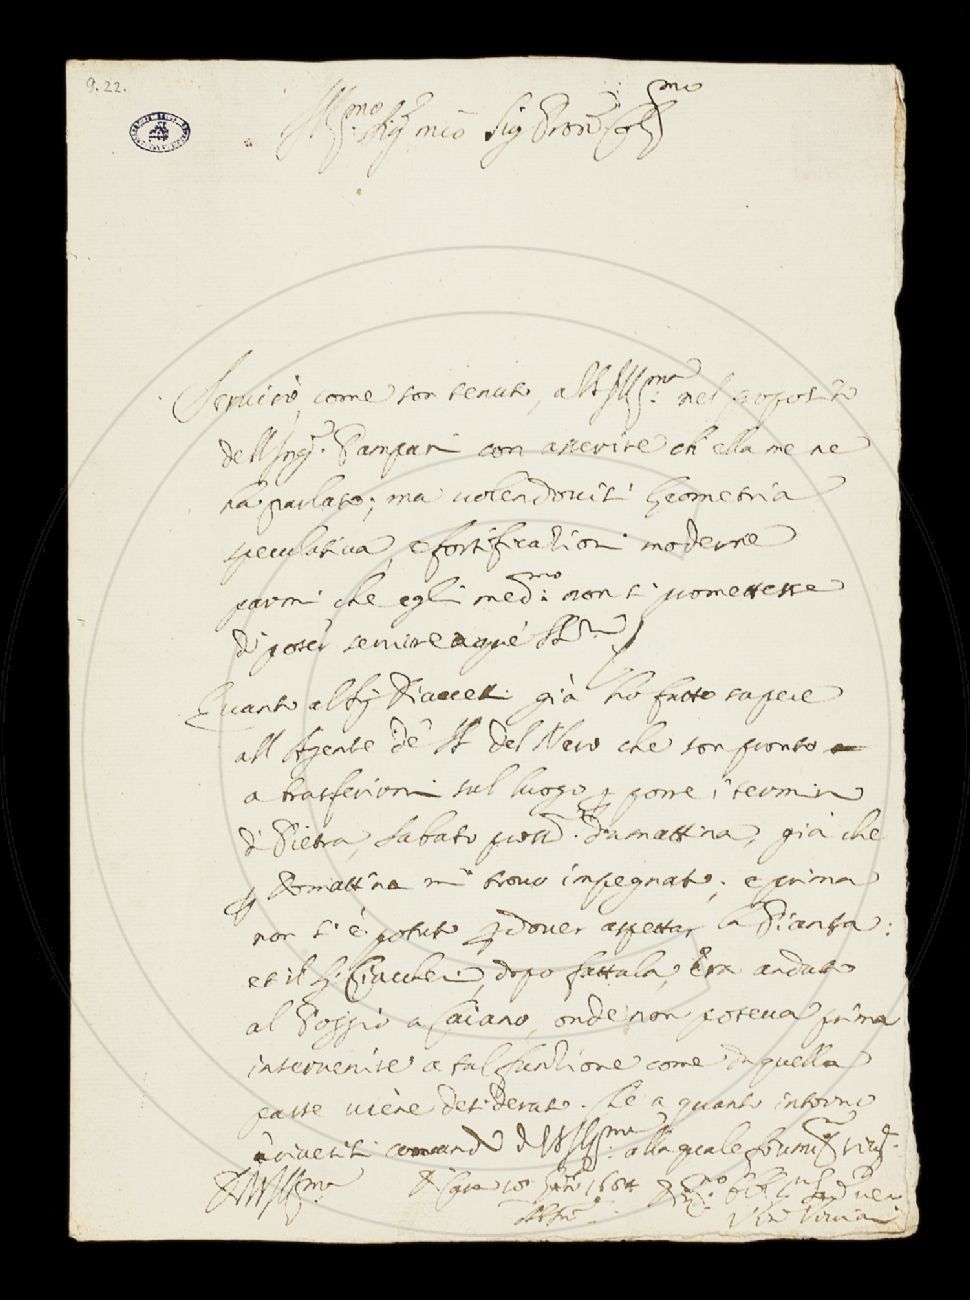 9. 22.
Ill.mo Sig.r mio Sig.r Pron Col.mo
Servirò, come son tenuto, a VS Ill.ma nel proposito
dell'Ing.r Pampani con asserire ch'ella me ne
ha parlato; ma volendovisi Geometria
speculativa, e fortificazioni moderne
parmi che egli med.mo non si promettesse
di poter servire a que' SS.ri
Quanto al Sig.r già ho fatto sapere
all'Agente de' SS. del Nero che son pronto
a trasferirmi sul luogo p porre i termini
di Pietra, Sabato pross.o da mattina, già che
p Domattina mi trovo impegnato; e prima
non s'è potuto p dover aspettar la Pianta:
et il S. Ciaccheri, dopo fattala, era andato
al Poggio a Caiano, onde non poteva prima
intervenire a tal funzione come da quella
parte viene desiderato. Che è quanto intorno
a riveriti comandi di VS Ill.ma alla quale
Di VS Ill.ma Di Casa 1684